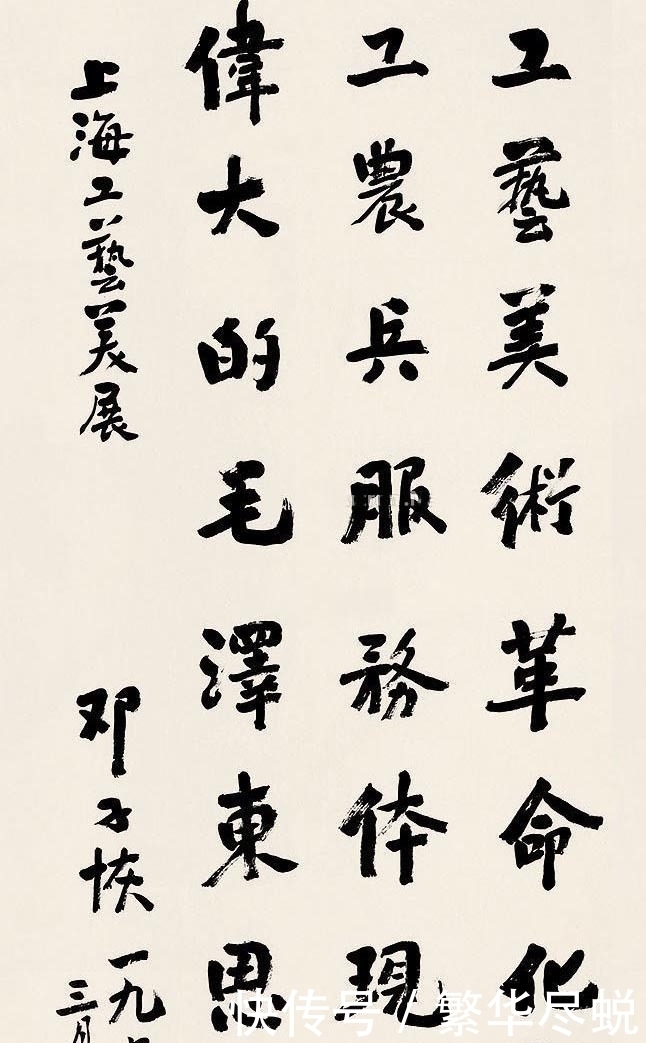 工藝美術革命化
工農兵服務体現
偉大的毛澤東思
上海工藝美展
邓子恢 一九
三月
快传号 / 繁华尽蜕